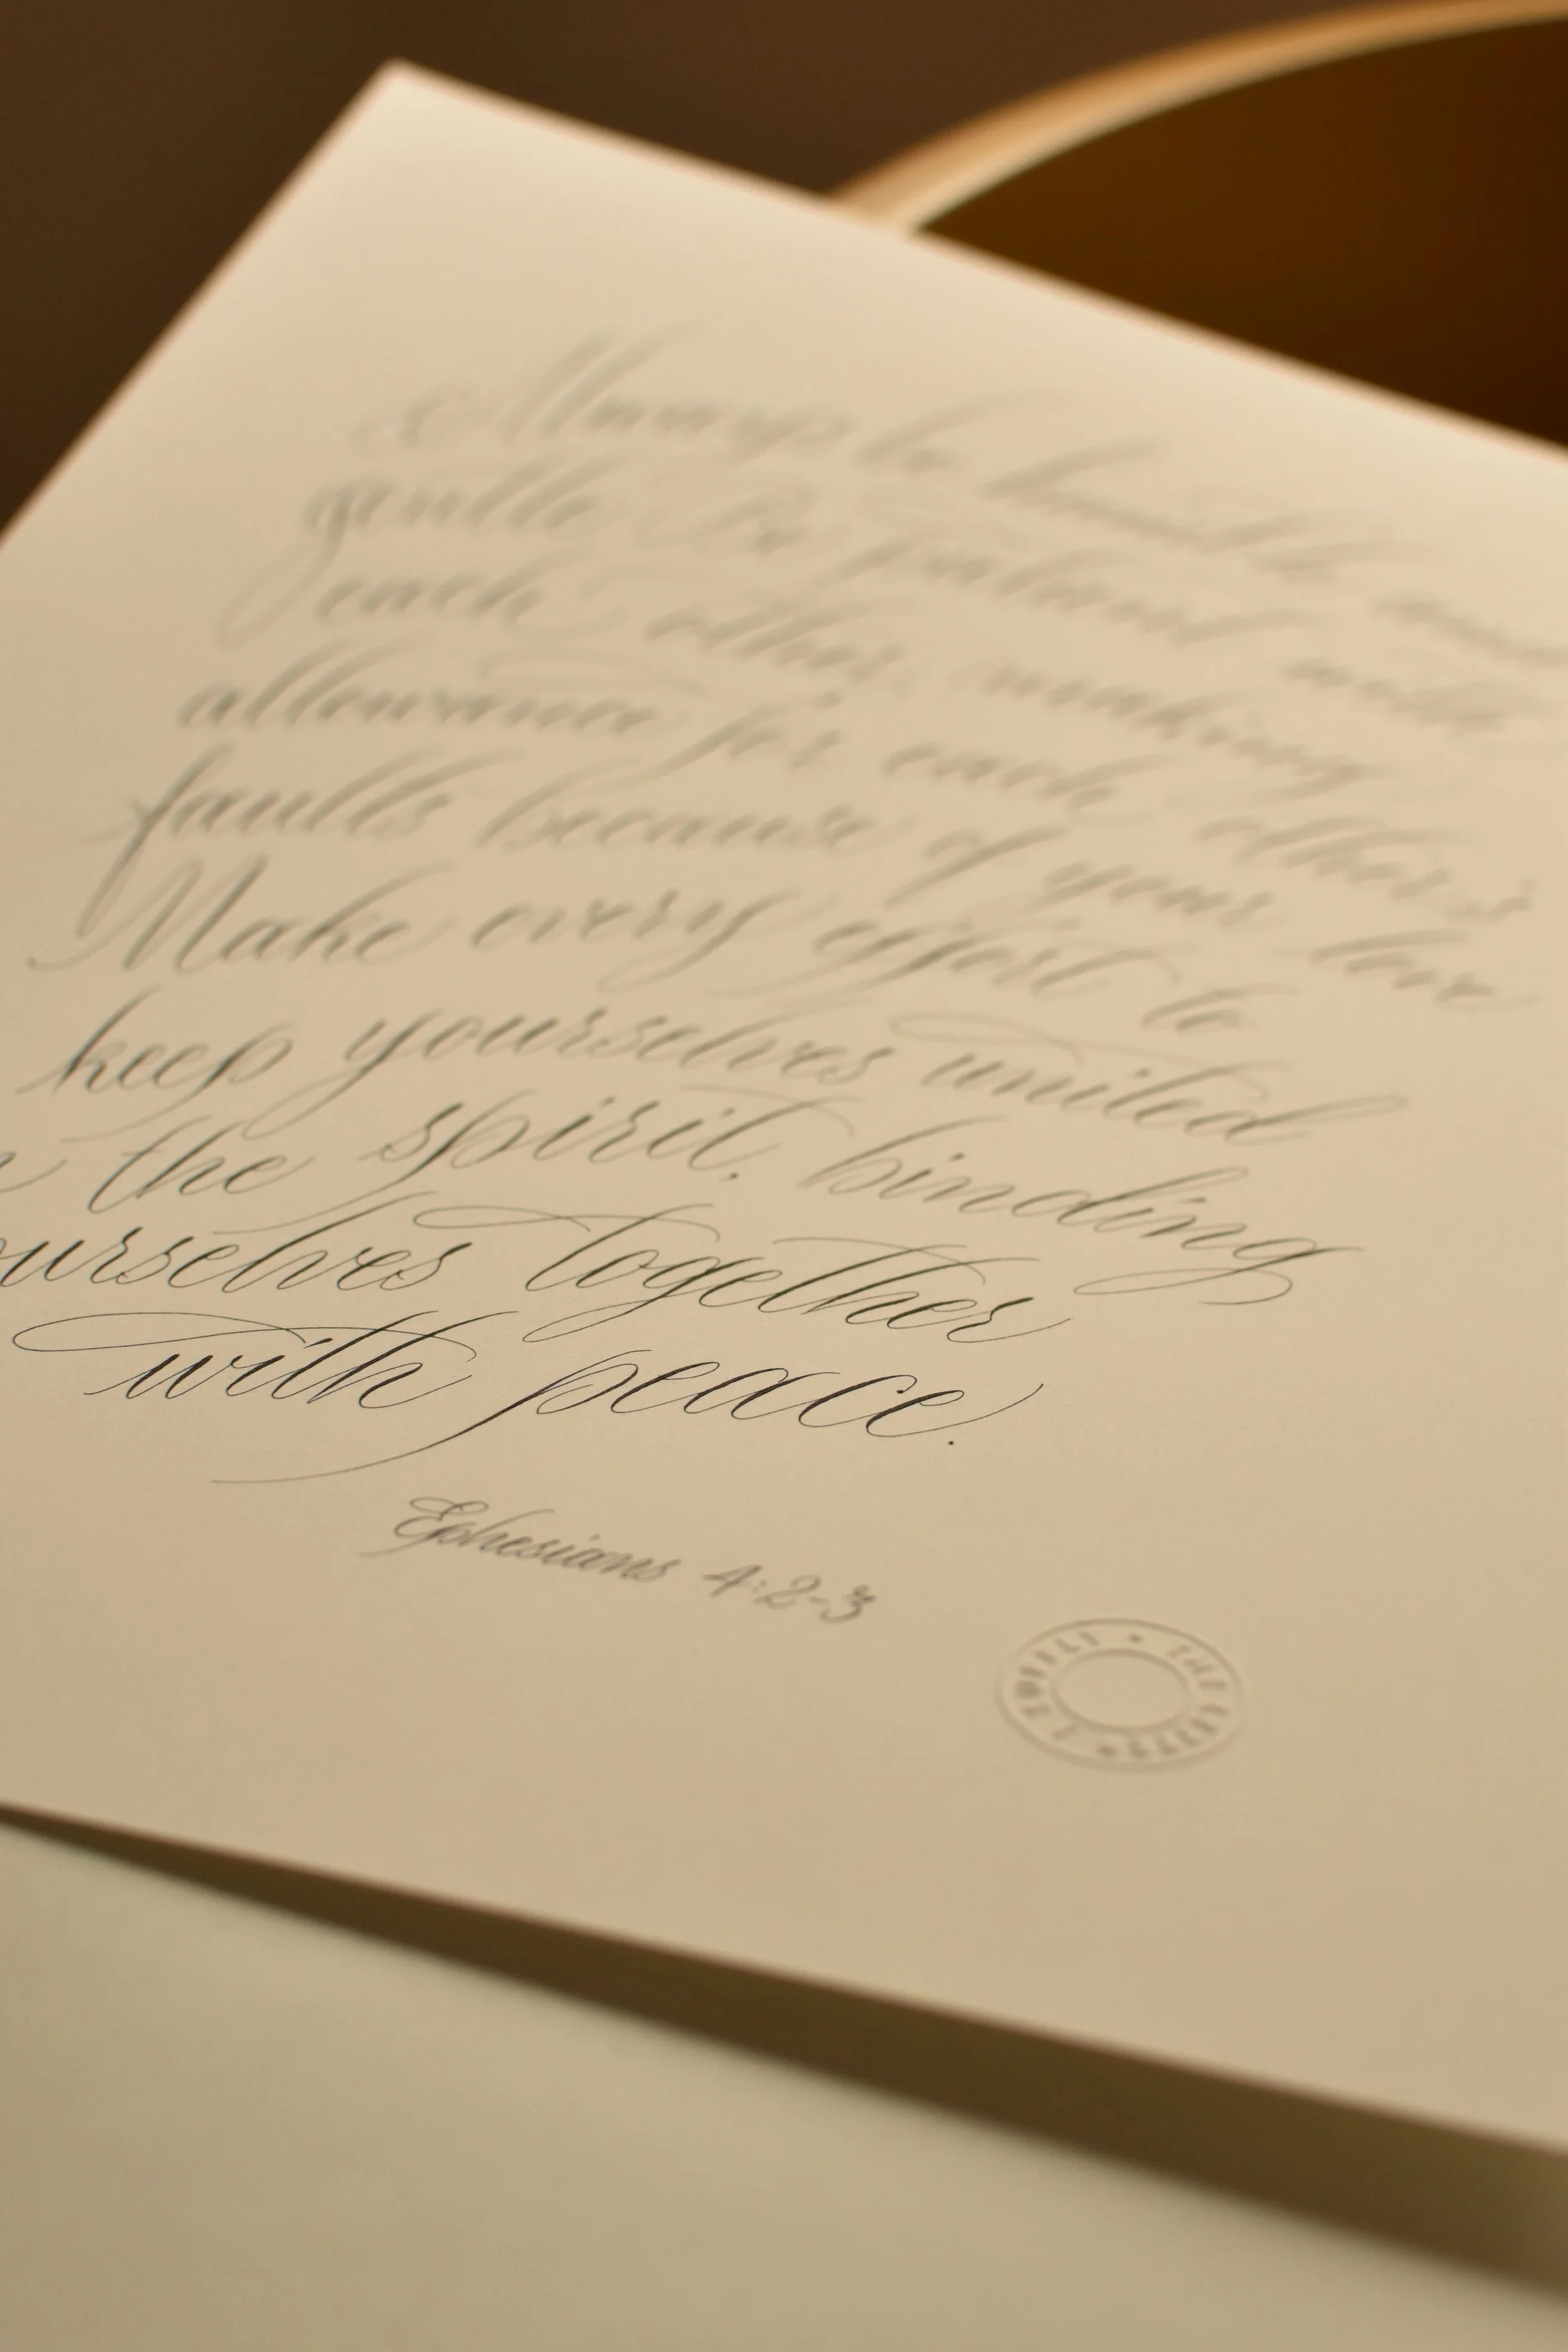 Always be humble and
gentle. Be patient with
each other, making
allowance for each other's
faults because of your love
Make every effort to
keep yourselves united
the spirit, binding
ourselves together
with peace.
Ephesians 4:2-3